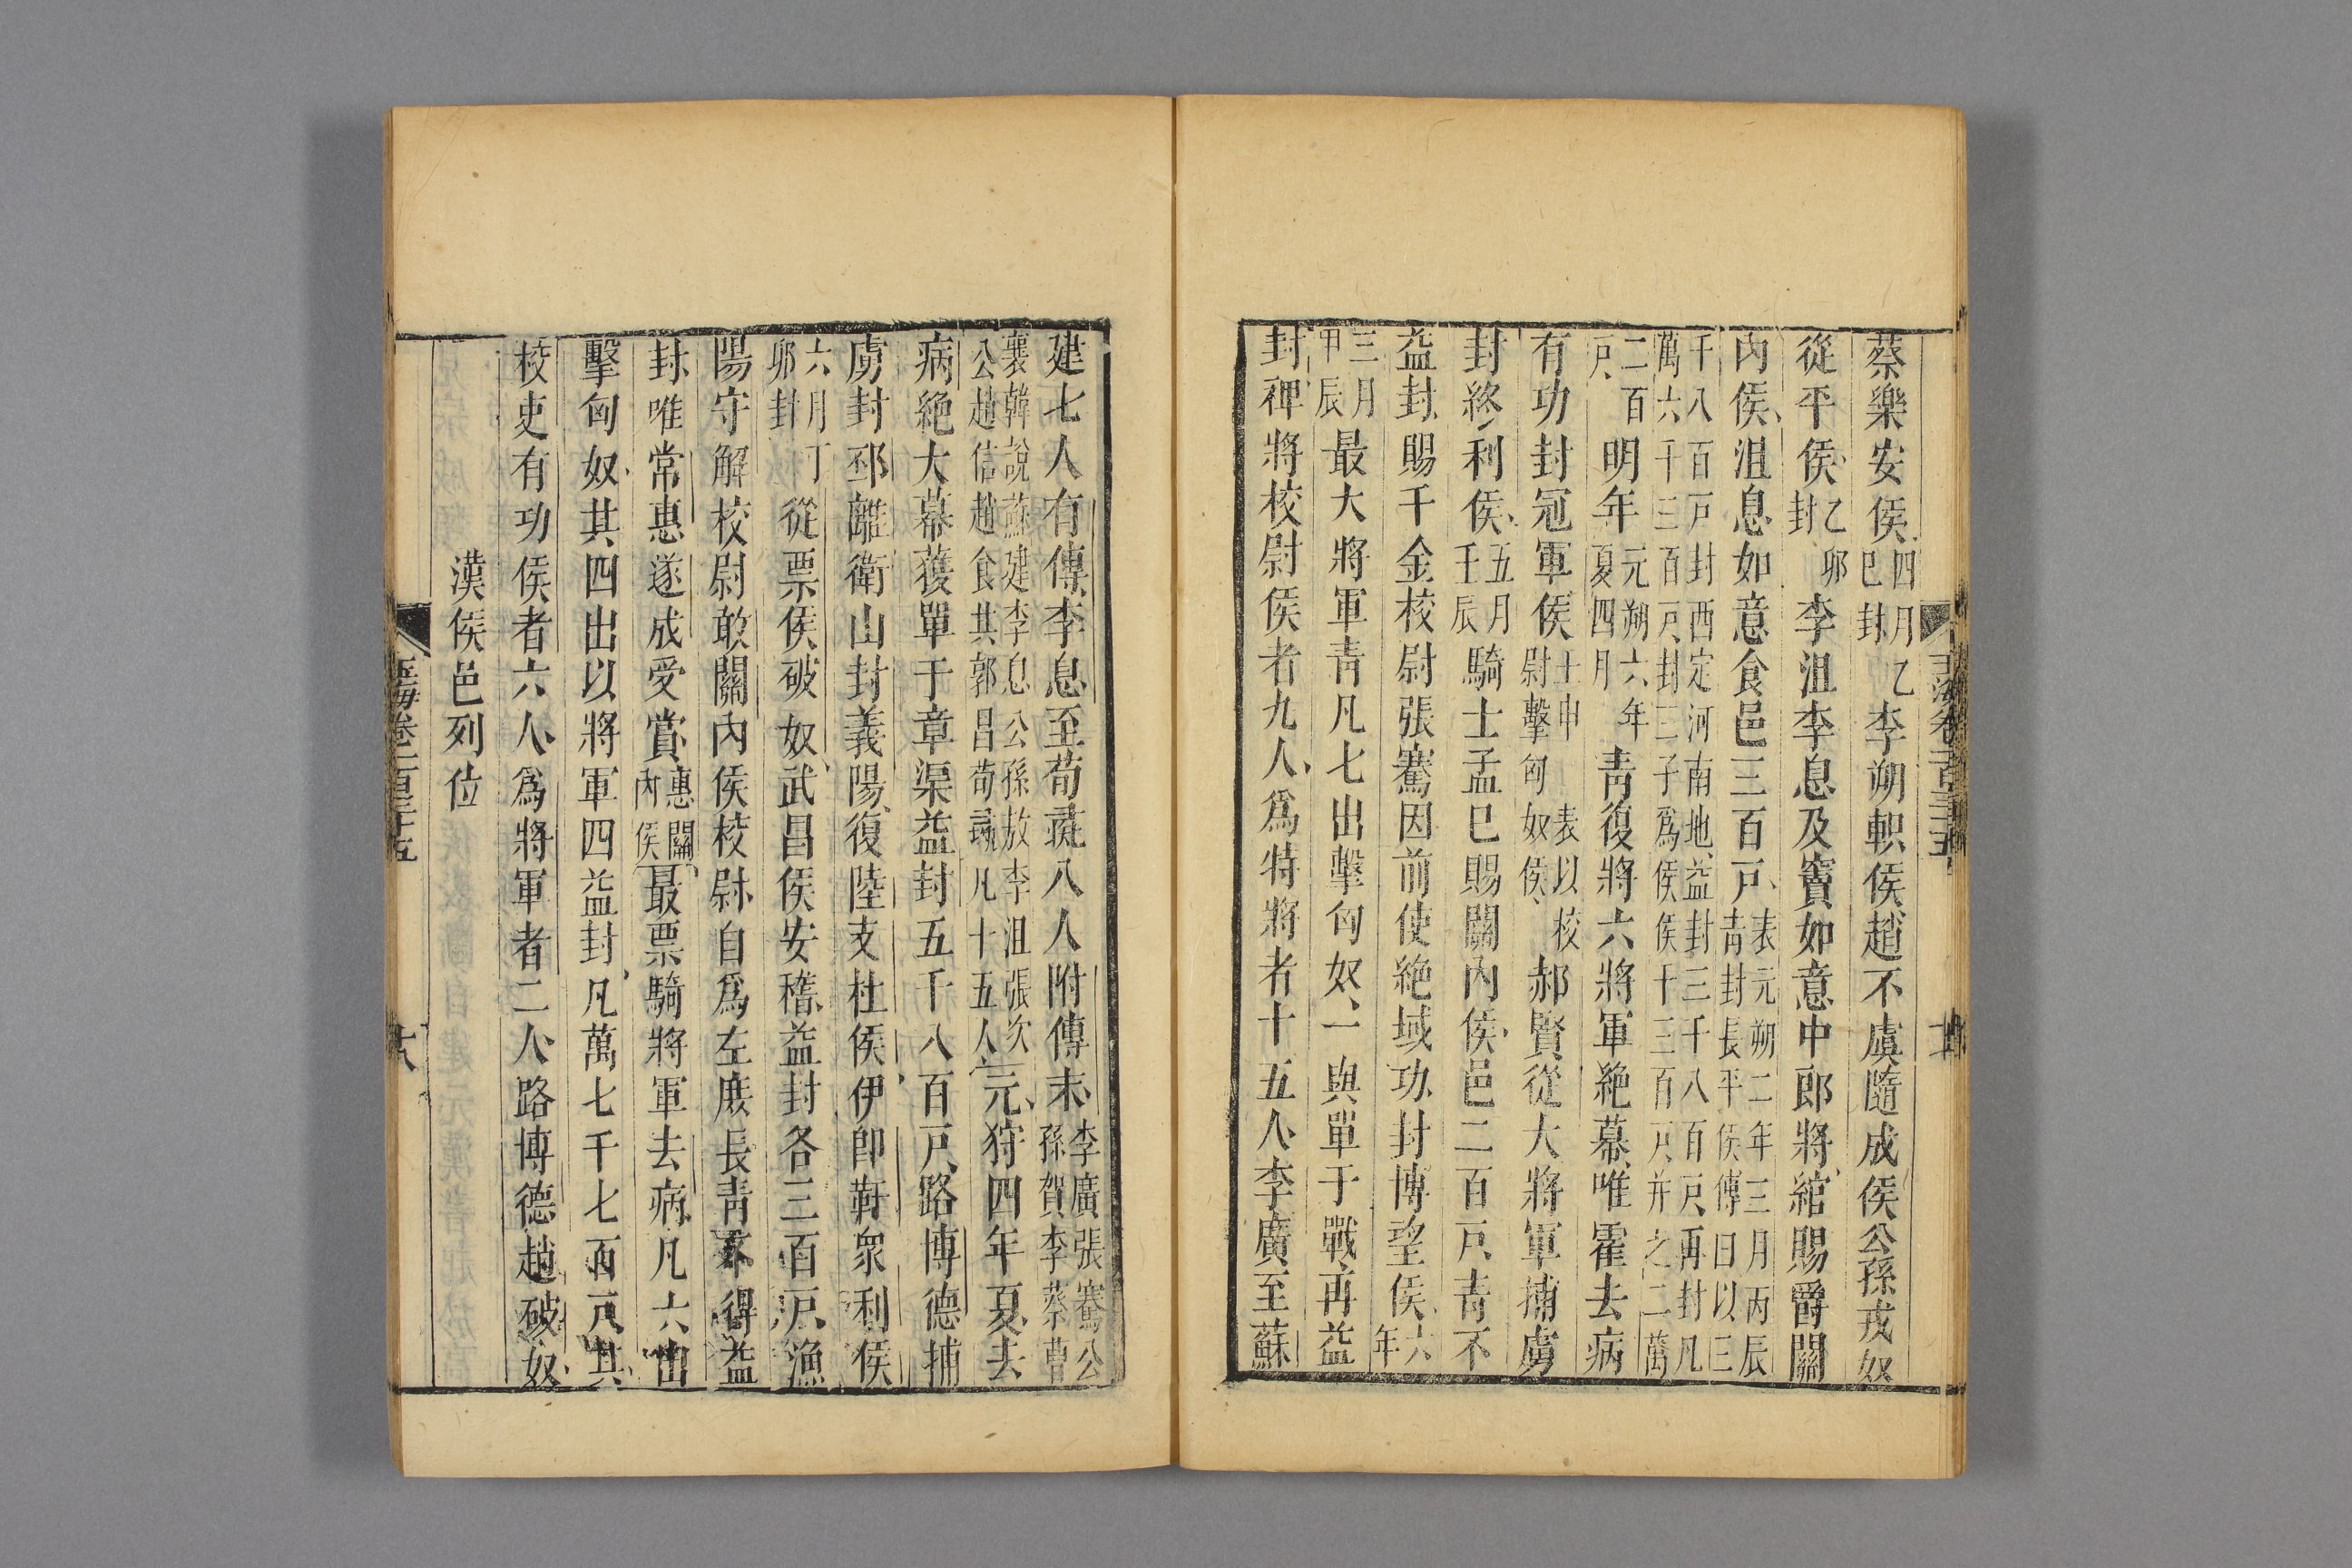 蔡樂安侯四月乙巳封李朔軹侯趙不虞隨成侯公孫戎奴
從平侯乙卯封李沮李息及竇如意中郎將綰賜爵關
內侯沮息如意食邑三百戶表元朔二年三月丙辰青封長平侯傳曰以三
千八百戶封西定河南地益封三千八百戶再封凡萬六千三百戶封三子爲侯侯千三百戶并之二萬
二百戶明年元朔六年夏四月青復將六將軍絶幕唯霍去病
有功封冠軍侯壬申表以校尉擊匈奴侯郝賢從大將軍捕虜
封終利侯五月壬辰騎士孟巳賜關內侯邑二百戶青不
益封賜千金校尉張騫因前使絶域功封博望侯六年
三月甲辰最大將軍青凡七出擊匈奴一與單于戰再益
封裨將校尉侯者九人爲特將者十五人李廣至蘇
建七人有傳李息至荀彘八人附傳末李廣張騫公孫賀李蔡曹
襄韓說蘇建李息公孫敖李沮張次公趙信趙食其郭昌荀彘凡十五人元狩四年夏去
病絶大幕獲單于章渠益封五千八百戶路博德捕
虜封邳離衛山封義陽復陸支杜侯伊卽靬衆利侯
六月丁卯封從票侯破奴武昌侯安稽益封各三百戶漁
陽守解校尉敢關內侯校尉自爲左庻長青不得益
封唯常惠遂成受賞惠關內侯最票騎將軍去病凡六出
擊匈奴其四出以將軍四益封凡萬七千七百戶其
校吏有功侯者六人爲將軍者二人路博德趙破奴
漢侯邑列位
玉海卷一百三十五
十八